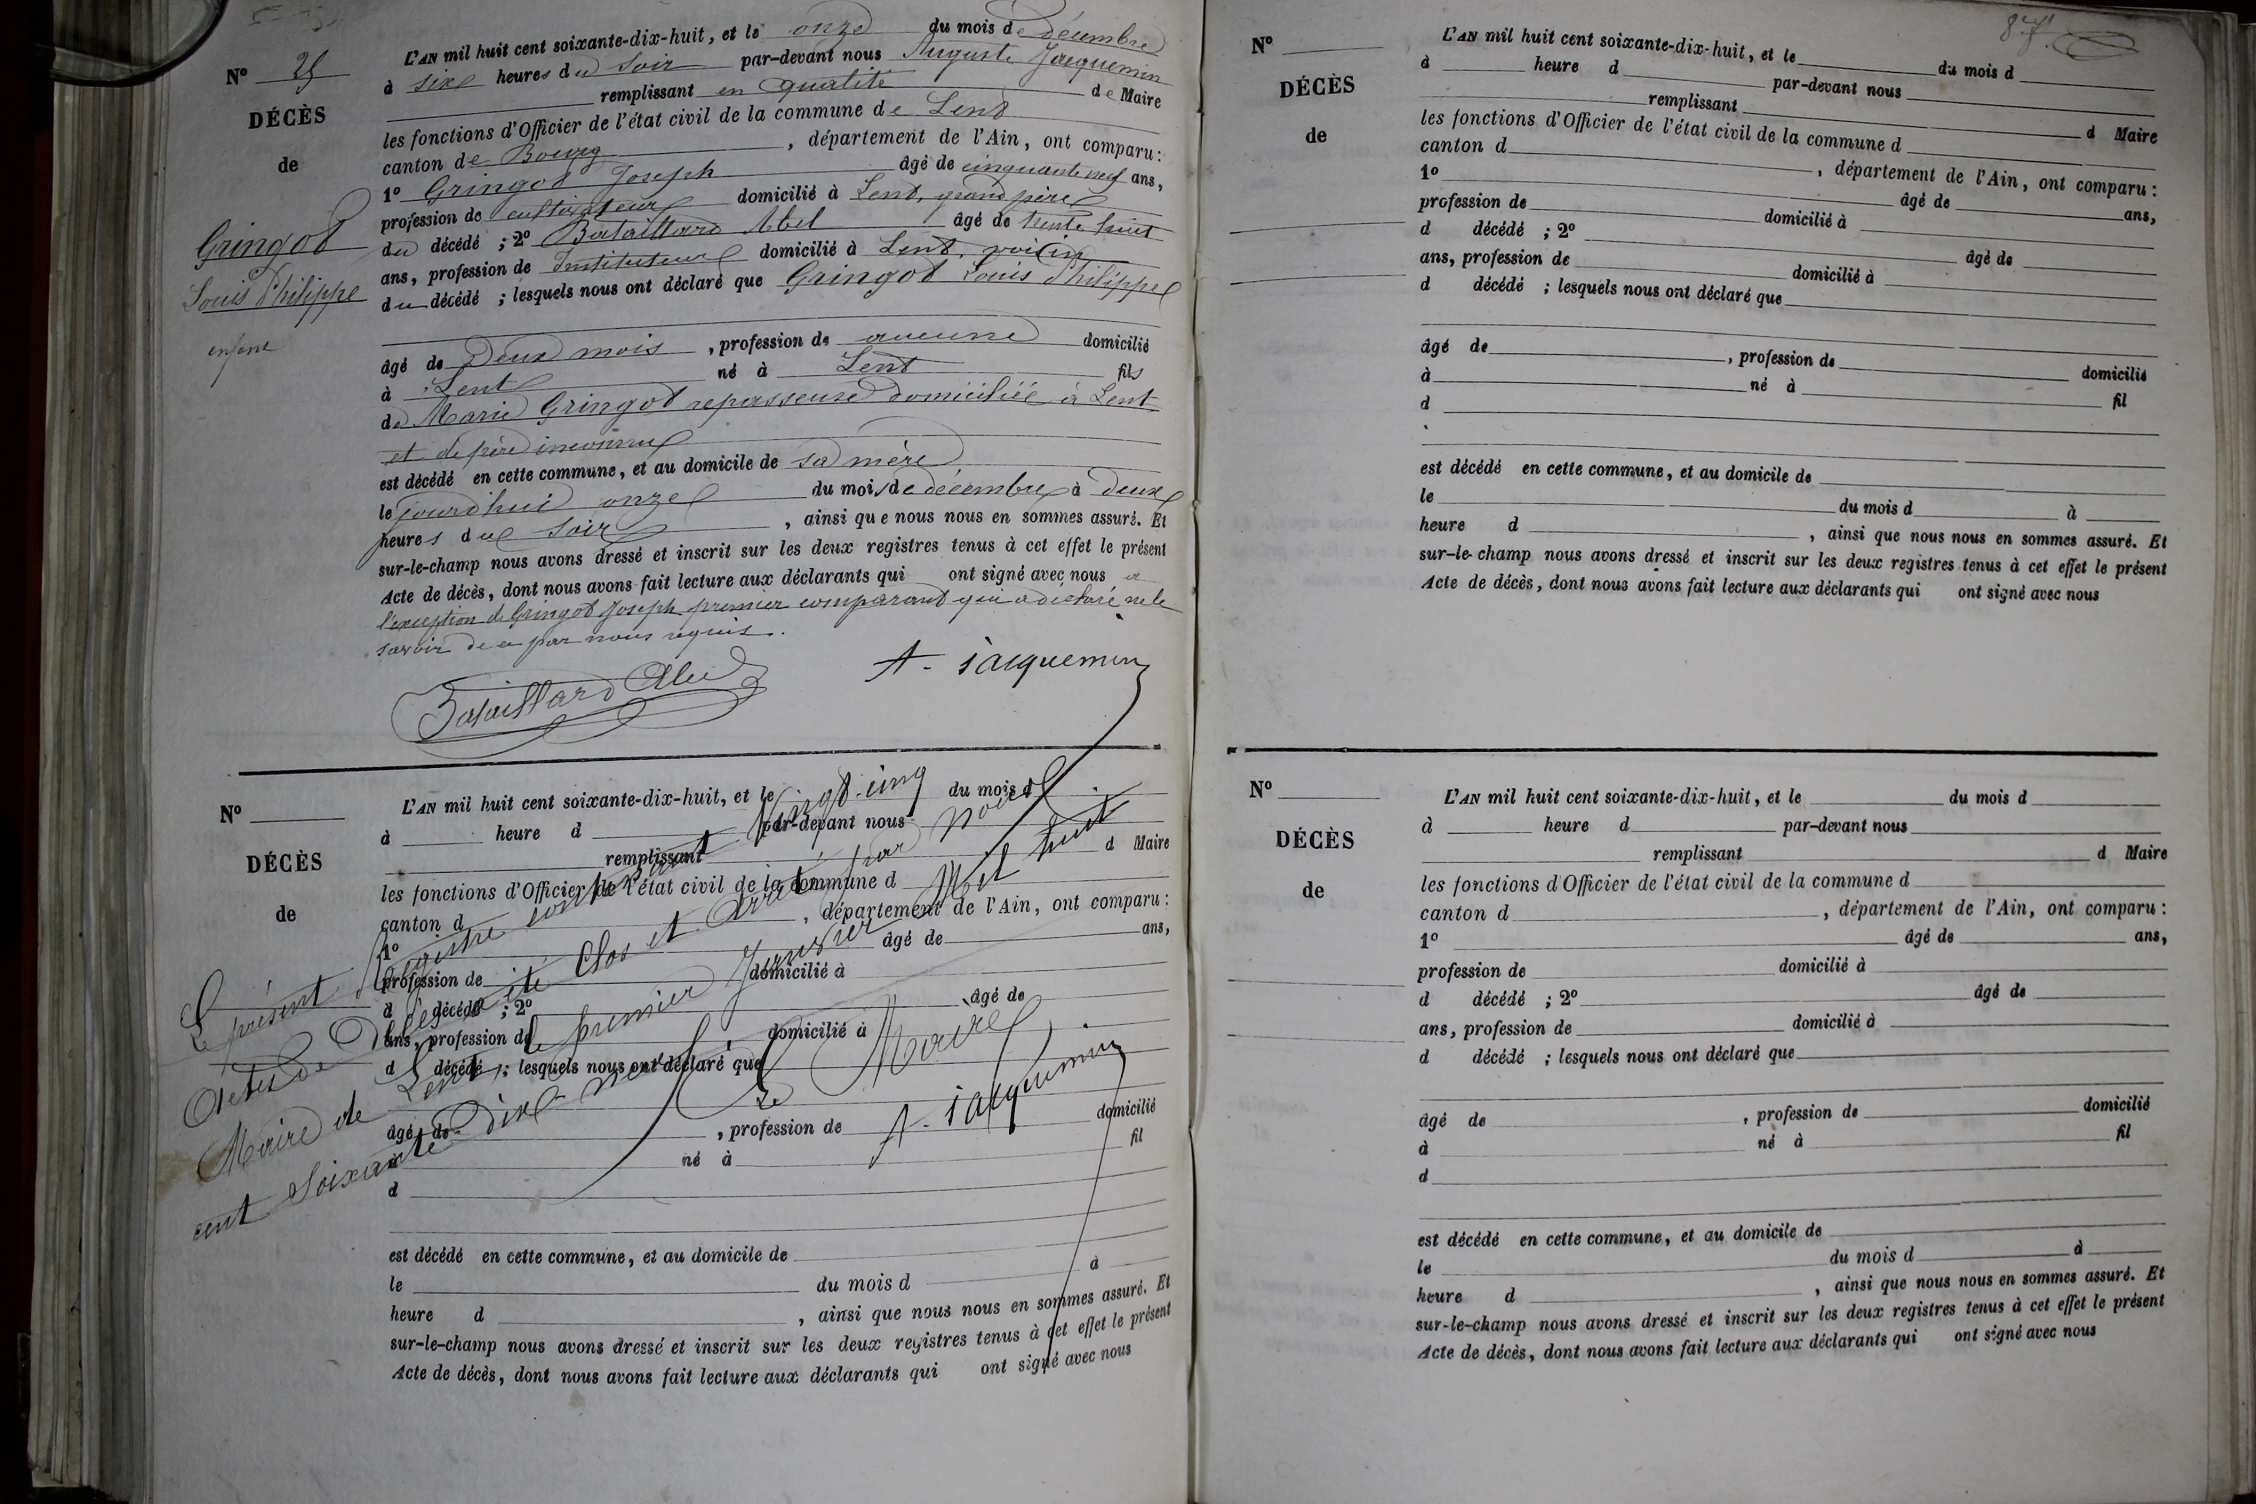 N° 25
DÉCÈS
de
Gringot
Louis Philippe
enfant
L'AN mil huit cent soixante-dix-huit, et le onze du mois de décembre
à six heures du soir par-devant nous Auguste Jacquemin
remplissant en qualité de Maire
les fonctions d'Officier de l'état civil de la commune de Lent
canton de Bourg, département de l'Ain, ont comparu :
1° Gringot Joseph âgé de cinquante neuf ans,
profession de cultivateur domicilié à Lent, grand père
du décédé ; 2° Bataillard Abel âgé de trente huit
ans, profession de Instituteur domicilié à Lent, voisin
du décédé ; lesquels nous ont déclaré que Gringot Louis Philippe
âgé de Deux mois, profession de aucune domicilié
à Lent né à Lent fils
de Marie Gringot repasseuse domiciliée à Lent
et de père inconnu
est décédé en cette commune, et au domicile de sa mère
le jourd'hui onze du mois de décembre à deux
heures du soir, ainsi que nous nous en sommes assuré. Et
sur-le-champ nous avons dressé et inscrit sur les deux registres tenus à cet effet le présent
Acte de décès, dont nous avons fait lecture aux déclarants qui ont signé avec nous à
l'exception de Gringot Joseph premier comparant qui a déclaré ne le
savoir de ce par nous requis.
Bataillard Abel
A. Jacquemin
N°
DÉCÈS
de
L'AN mil huit cent soixante-dix-huit, et le du mois d
à heure d par-devant nous
remplissant d Maire
les fonctions d'Officier de l'état civil de la commune d
canton d , département de l'Ain, ont comparu :
1° âgé de ans,
profession de domicilié à
d décédé ; 2° âgé de
ans, profession de domicilié à
d décédé ; lesquels nous ont déclaré que
âgé de , profession de domicilié
à né à fil
d
est décédé en cette commune, et au domicile de
le du mois d à
heure d , ainsi que nous nous en sommes assuré. Et
sur-le-champ nous avons dressé et inscrit sur les deux registres tenus à cet effet le présent
Acte de décès, dont nous avons fait lecture aux déclarants qui ont signé avec nous
Le présent Registre contenant Vingt-cinq
Actes de Décès a été Clos et Arrêté par nous
Maire de Lent, le premier Janvier Mil huit
cent soixante Dix-neuf
Le Maire
A. Jacquemin
87
N°
DÉCÈS
de
L'AN mil huit cent soixante-dix-huit, et le du mois d
à heure d par-devant nous
remplissant d Maire
les fonctions d'Officier de l'état civil de la commune d
canton d , département de l'Ain, ont comparu :
1° âgé de ans,
profession de domicilié à
d décédé ; 2° âgé de
ans, profession de domicilié à
d décédé ; lesquels nous ont déclaré que
âgé de , profession de domicilié
à né à fil
d
est décédé en cette commune, et au domicile de
le du mois d à
heure d , ainsi que nous nous en sommes assuré. Et
sur-le-champ nous avons dressé et inscrit sur les deux registres tenus à cet effet le présent
Acte de décès, dont nous avons fait lecture aux déclarants qui ont signé avec nous
N°
DÉCÈS
de
L'AN mil huit cent soixante-dix-huit, et le du mois d
à heure d par-devant nous
remplissant d Maire
les fonctions d'Officier de l'état civil de la commune d
canton d , département de l'Ain, ont comparu :
1° âgé de ans,
profession de domicilié à
d décédé ; 2° âgé de
ans, profession de domicilié à
d décédé ; lesquels nous ont déclaré que
âgé de , profession de domicilié
à né à fil
d
est décédé en cette commune, et au domicile de
le du mois d à
heure d , ainsi que nous nous en sommes assuré. Et
sur-le-champ nous avons dressé et inscrit sur les deux registres tenus à cet effet le présent
Acte de décès, dont nous avons fait lecture aux déclarants qui ont signé avec nous